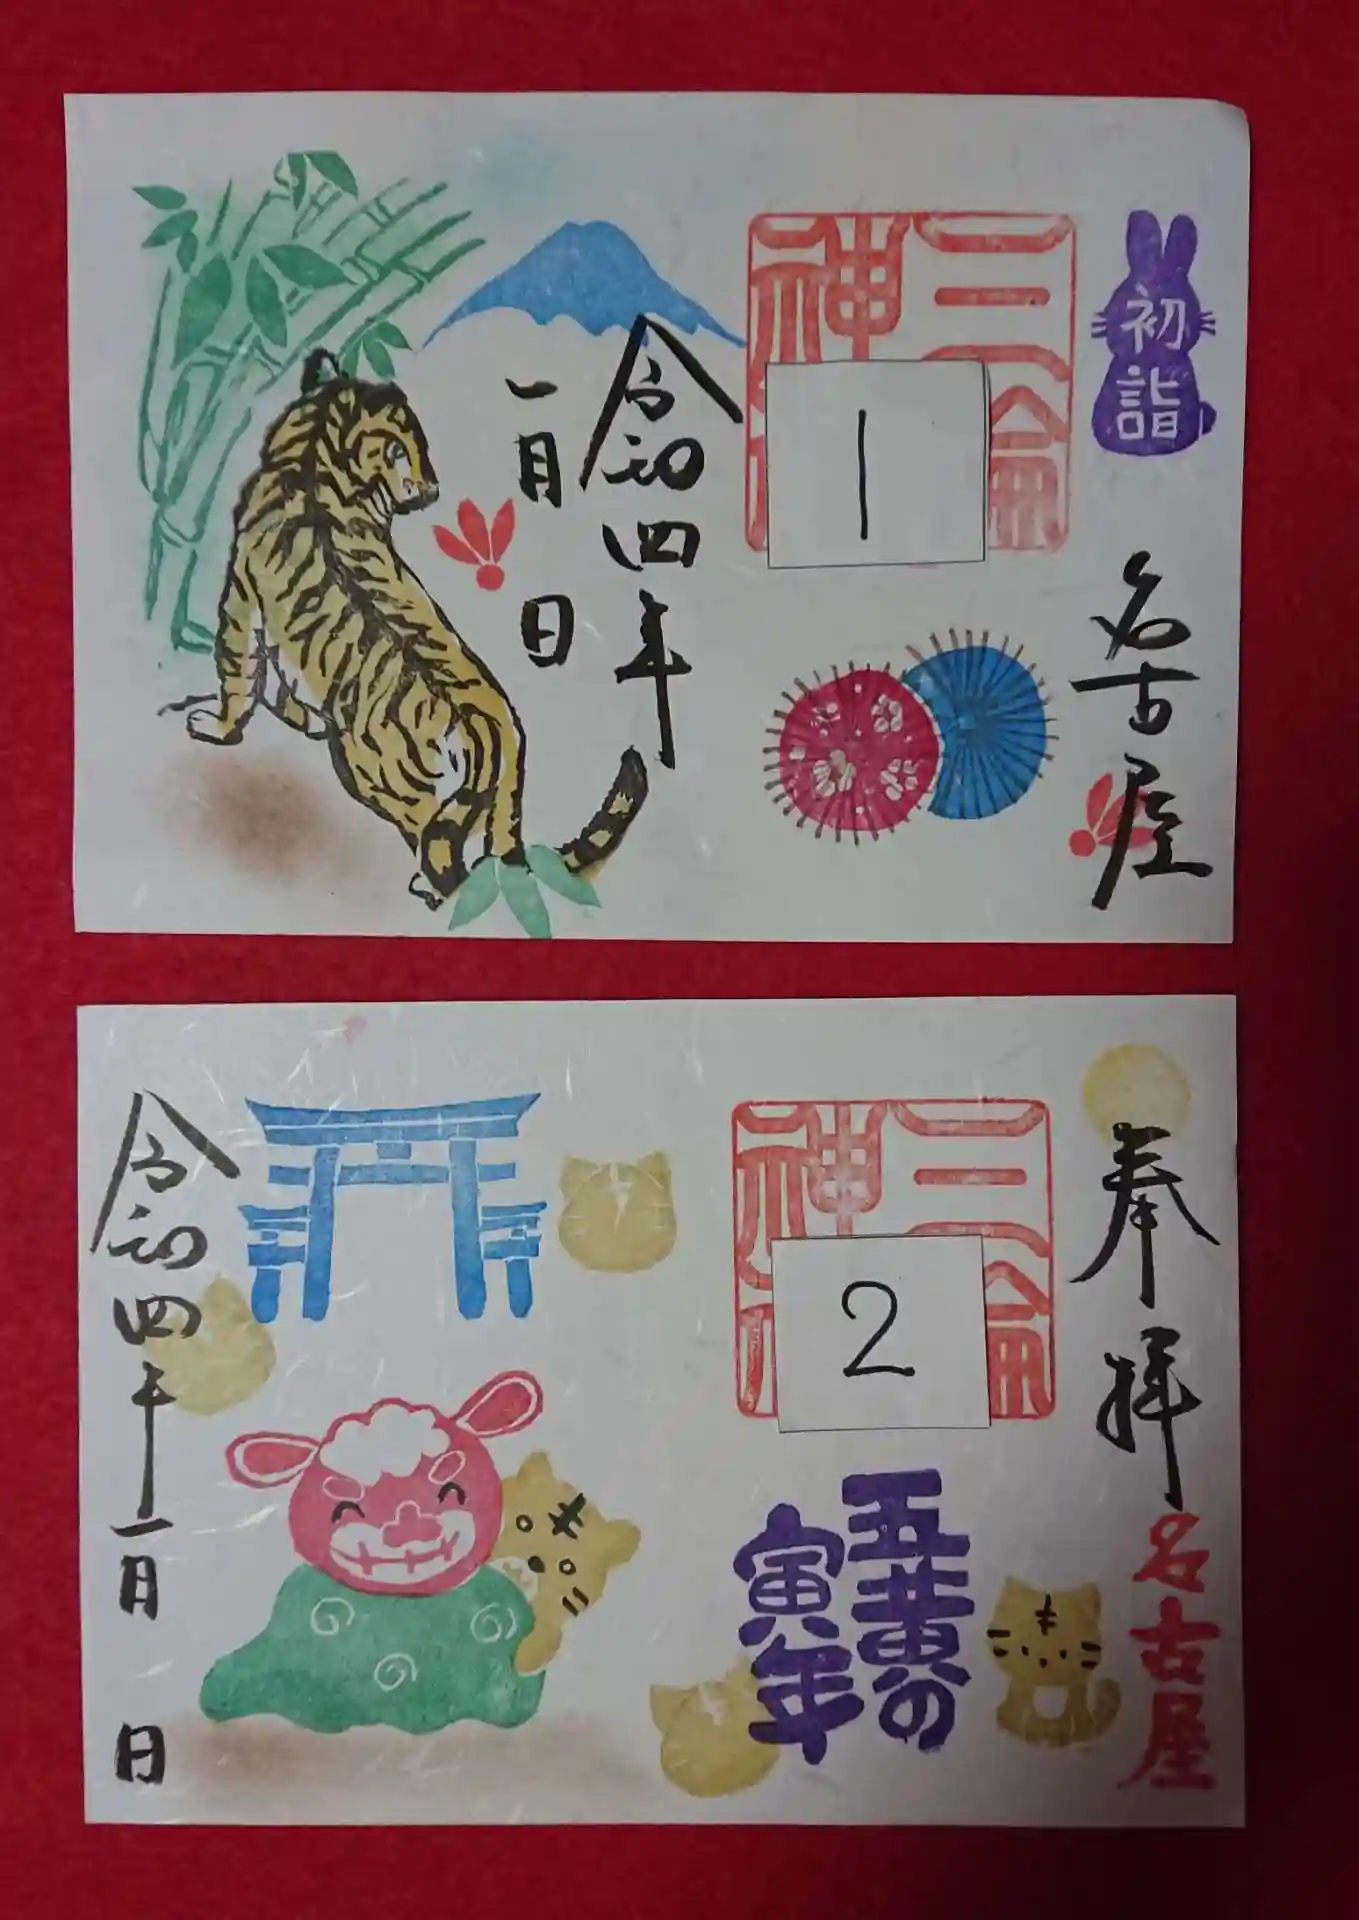 初詣
名古屋
三輪
神
1
令和四年
一月 日
奉拝
名古屋
三輪
神
2
五黄の
寅年
令和四年一月 日